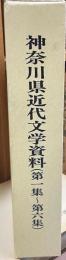 神奈川県近代文学資料(第一集~第六集)